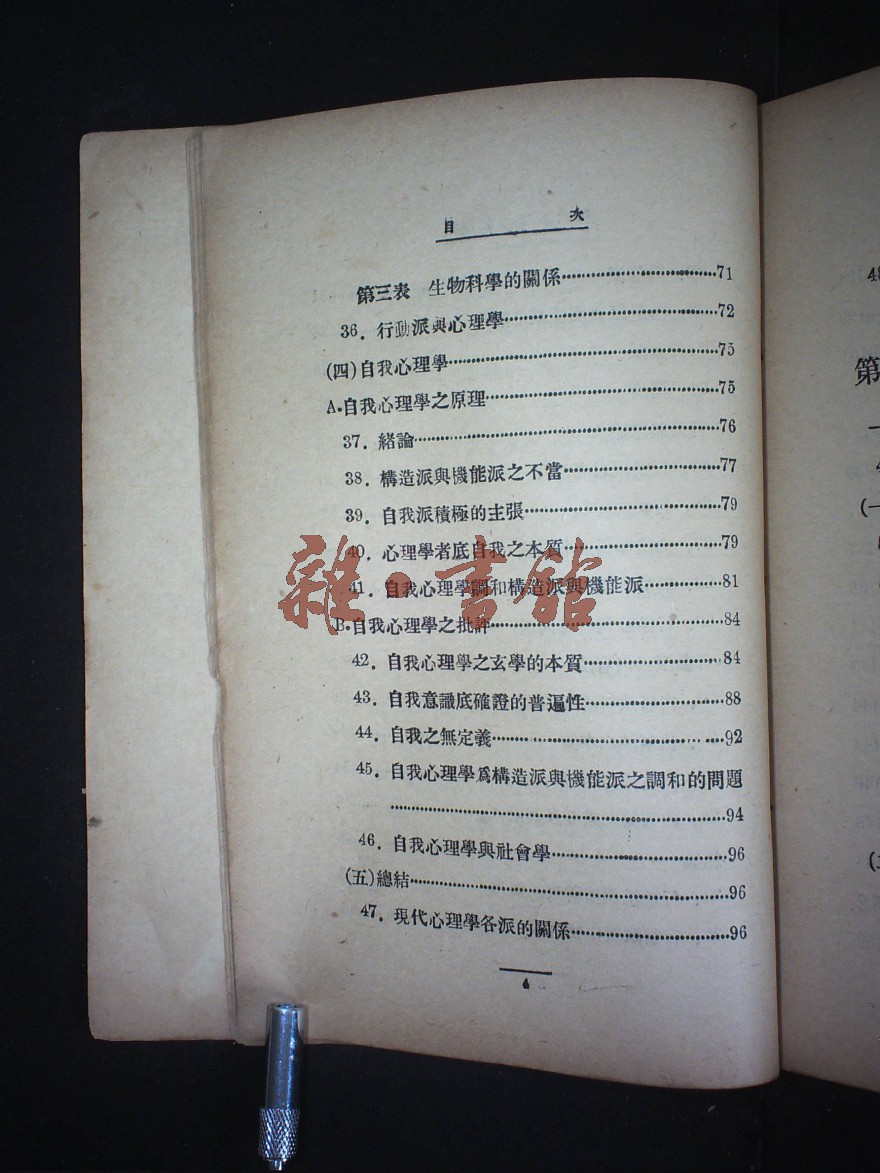 目 次
第三表 生物科學的關係 71
36. 行動派與心理學 72
(四)自我心理學 75
A.自我心理學之原理 75
37. 緒論 76
38. 構造派與機能派之不當 77
39. 自我派積極的主張 79
40. 心理學者底自我之本質 79
41. 自我心理學調和構造派與機能派 81
B.自我心理學之批評 84
42. 自我心理學之玄學的本質 84
43. 自我意識底確證的普遍性 88
44. 自我之無定義 92
45. 自我心理學爲構造派與機能派之調和的問題
94
46. 自我心理學與社會學 96
(五)總結 96
47. 現代心理學各派的關係 96
雜·書館
48
第
一
(一